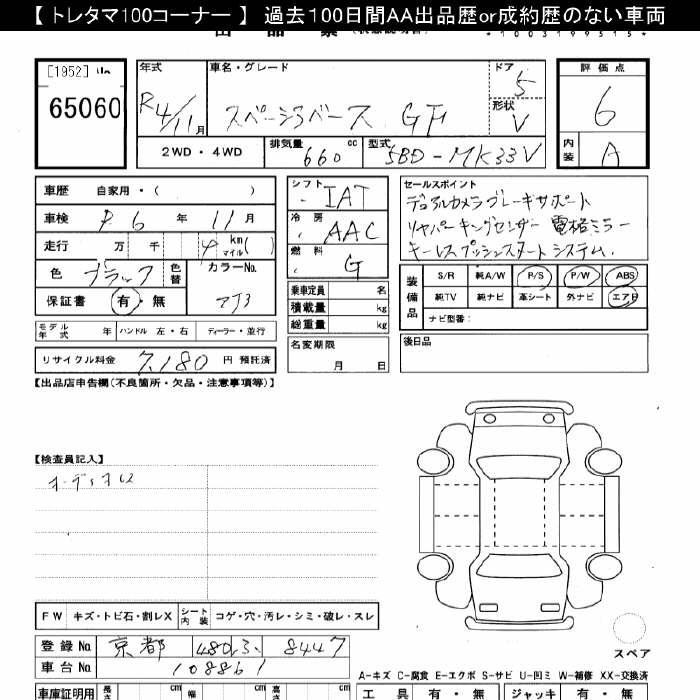 【 トレタマ100コーナー 】 過去100日間AA出品歴or成約歴のない車両
[1952]
65060
年式
R4/11月
車名・グレード
スペーシアベース GF
ドア
5
形状
V
評価点
6
内装
A
2WD・4WD
排気量
660cc
型式
5BD-MK33V
車歴 自家用・( )
車検 R6年11月
走行 万 千 4km マイル( )
色 ブラック
色替
カラーNo.
ZJ3
保証書 有・無
モデル年式 年
ハンドル 左・右
ディーラー・並行
リサイクル料金 7,180 円 預託済
シフト
IAT
冷房
AAC
燃料
G
乗車定員 名
積載量 kg
総重量 kg
名変期限
月 日
セールスポイント
デュアルカメラブレーキサポート
リヤパーキングセンサー 電格ミラー
キーレスプッシュスタートシステム.
装備品
S/R 純A/W P/S P/W ABS
純TV 純ナビ 革シート 外ナビ エアB
ナビ型番:
後日品
【出品店申告欄(不良箇所・欠品・注意事項等)】
【検査員記入】
オーディオレス
スペア
FW キズ・トビ石・割レX
シート内装
コゲ・穴・汚レ・シミ・破レ・スレ
登録No. 京都 480 8447
車台No. 108861
A-キズ C-腐食 E-エクボ S-サビ U-凹ミ W-補修 XX-交換済
車庫証明用 長さ cm 幅 cm 高さ cm
工具 有・無 ジャッキ 有・無